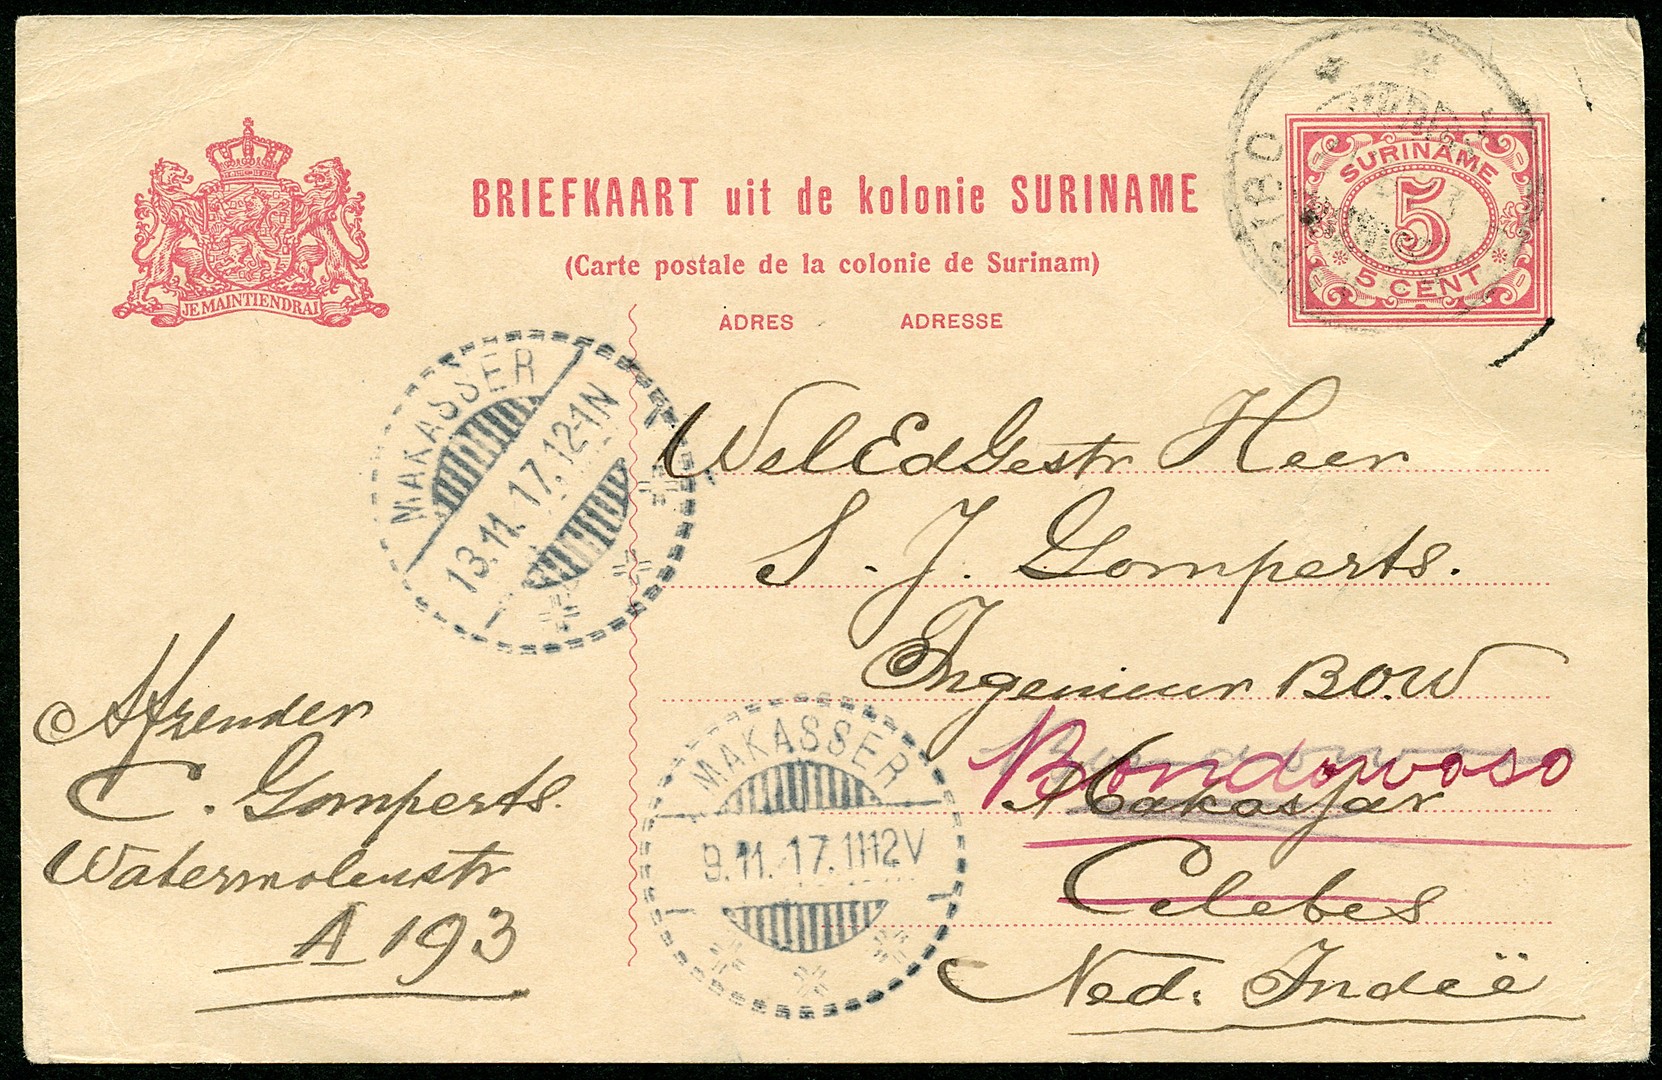 BRIEFKAART uit de kolonie SURINAME
(Carte postale de la colonie de Surinam)
ADRES ADRESSE
JE MAINTIENDRAI
SURINAME
5
5 CENT
MAKASSER
13.11.17.12-1N
WelEdGestr Heer
S. J. Gomperts.
Ingenieur B.O.W
Bondowoso
Makassar
Celebes
Ned. Indië
MAKASSER
9.11.17.11-12V
Afzender
C. Gomperts.
Watermolenstr
A 193